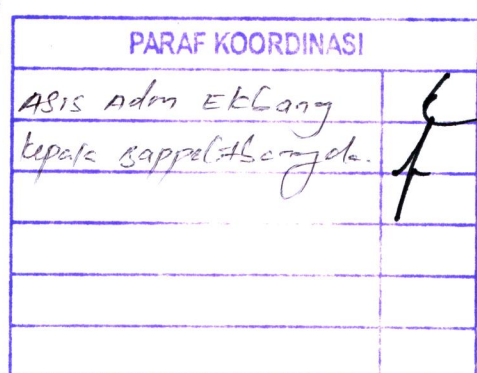 PARAF KOORDINASI
Asis Adm Ekbang
kepala Bappelitbangda.